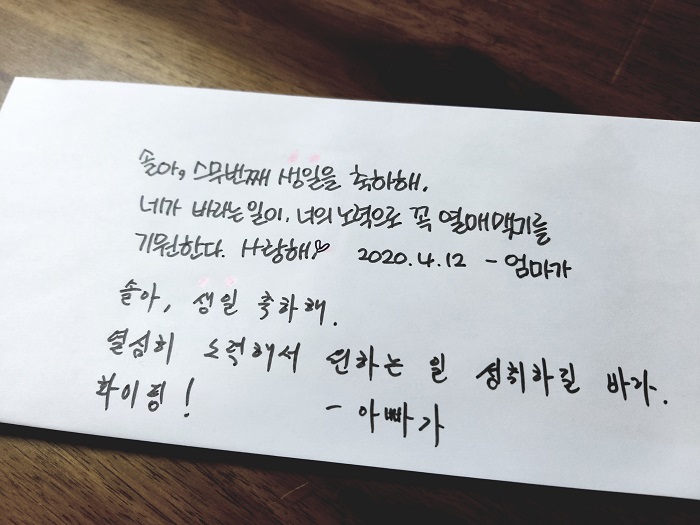 솔아, 스무번째 생일을 축하해.
네가 바라는 일이, 너의 노력으로 꼭 열매맺기를
기원한다. 사랑해♡ 2020.4.12 - 엄마가
솔아, 생일 축하해.
열심히 노력해서 원하는 일 성취하길 바라.
화이팅! - 아빠가